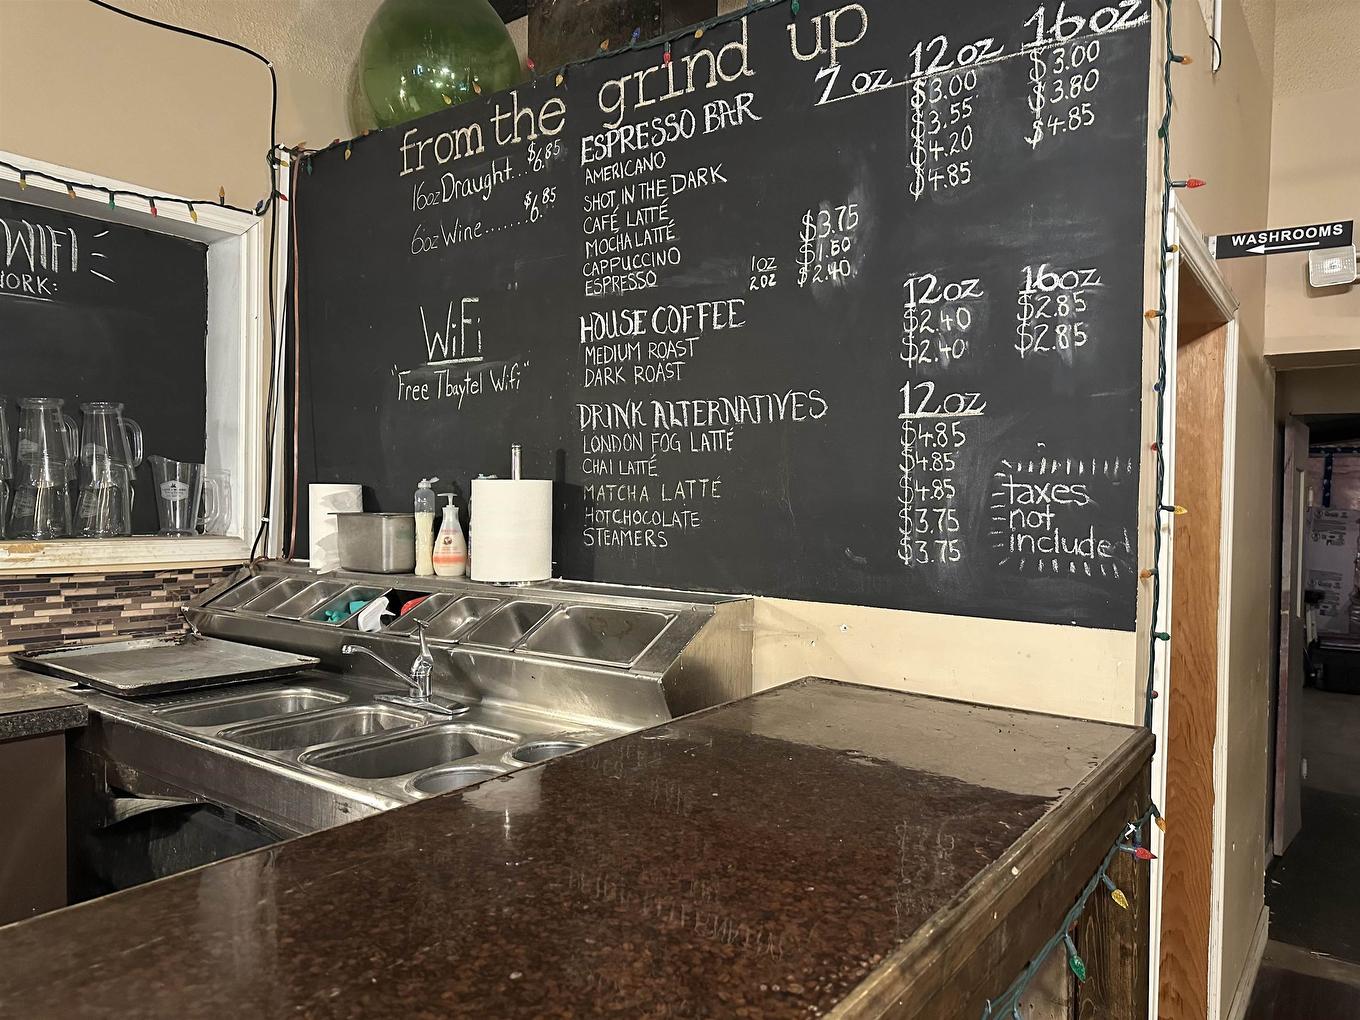 from the grind up
16oz Draught... $6.85
6oz Wine....... $6.85
WiFi
"Free Tbaytel Wifi"
WIFI
ESPRESSO BAR 7oz 12oz 16oz
AMERICANO $3.00 $3.00
SHOT IN THE DARK $3.55 $3.80
CAFÉ LATTÉ $4.20 $4.85
MOCHA LATTÉ $4.85
CAPPUCCINO $3.75
ESPRESSO 1oz $1.50
2oz $2.40
HOUSE COFFEE 12oz 16oz
MEDIUM ROAST $2.40 $2.85
DARK ROAST $2.40 $2.85
DRINK ALTERNATIVES 12oz
LONDON FOG LATTÉ $4.85
CHAI LATTÉ $4.85
MATCHA LATTÉ $4.85
HOT CHOCOLATE $3.75
STEAMERS $3.75
taxes
not
included
WASHROOMS